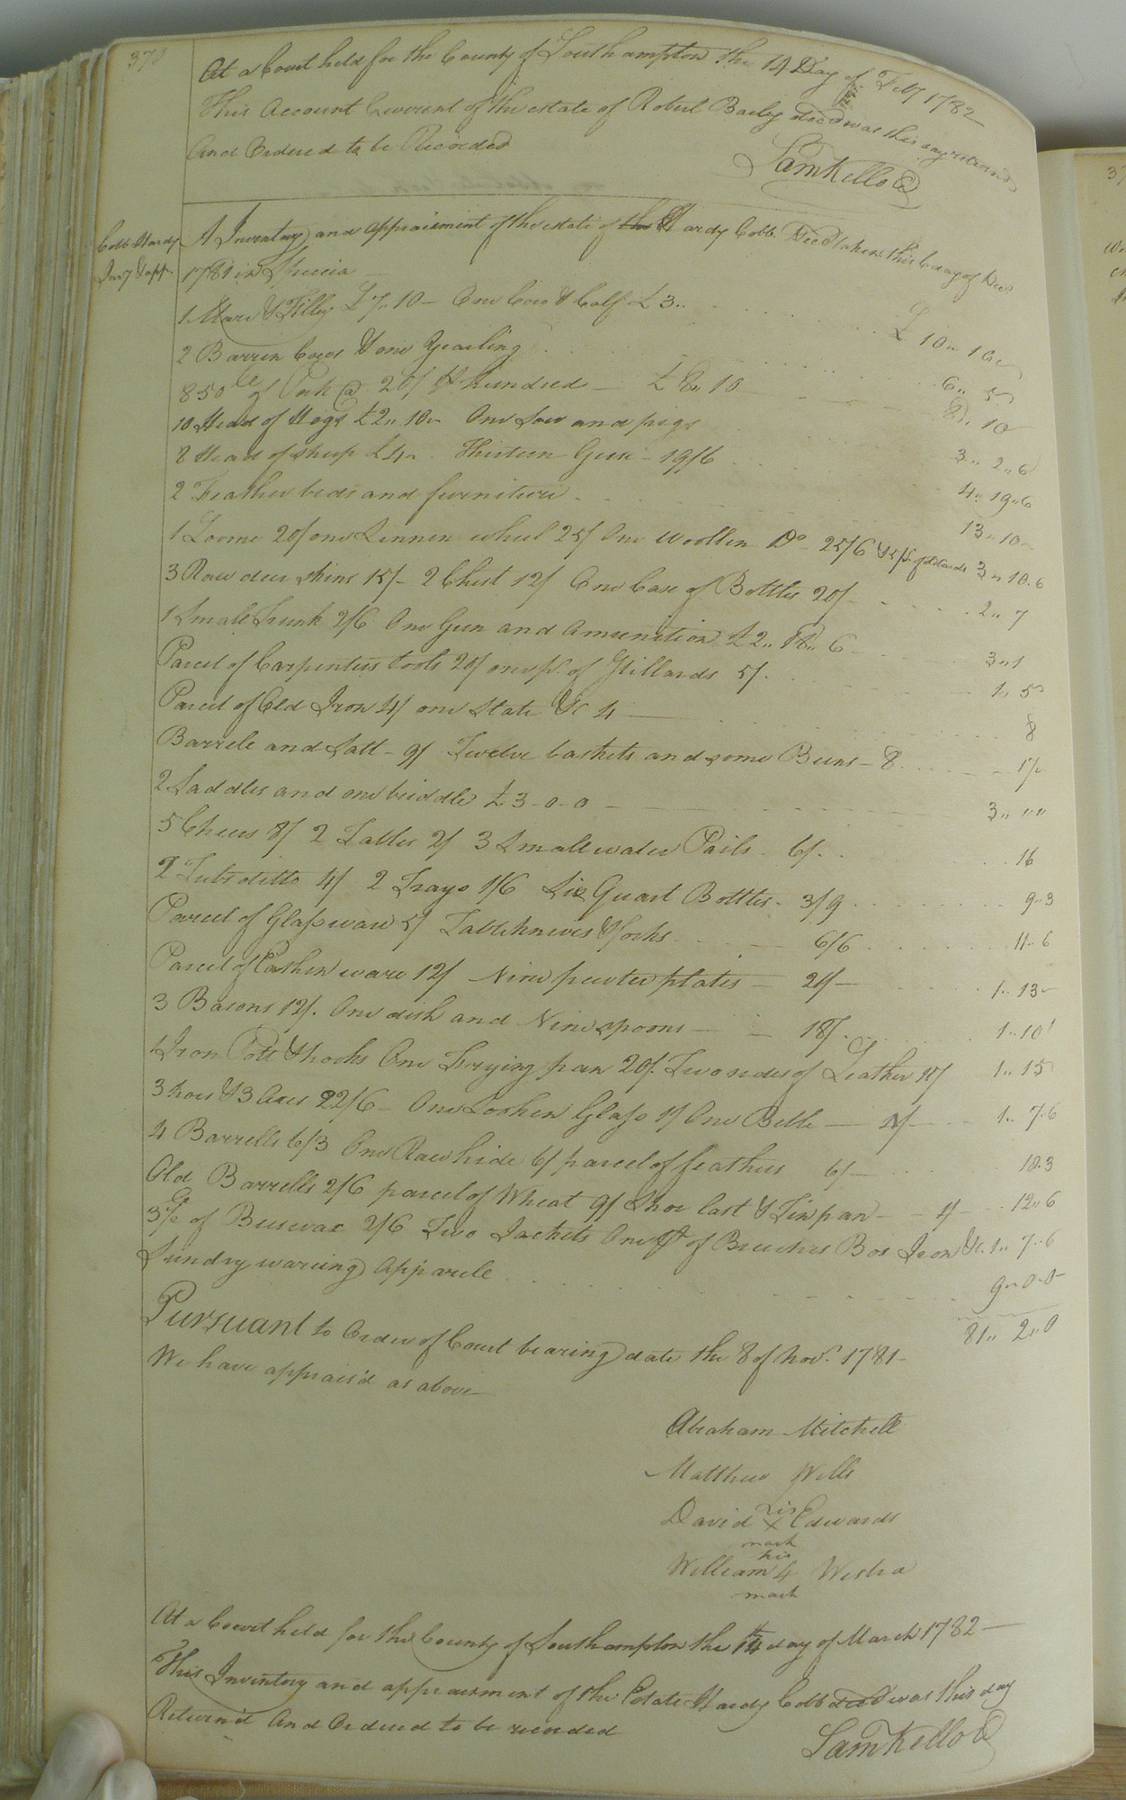 370
At a Court held for the County of Southampton the 14 Day of Feby 1782
This Account Current of the estate of Robert Bailey decd was this day returned
And Ordered to be Recorded
Saml Kello C
Cobb Hardy
Invy & app.
A Inventary and appraisment of the estate of the Hardy Cobb Decd taken this day of Decr
1781 in Specia
1 Mare & Filly £7.. 10 - One Cow & Calf £3.. £ 10.. 10..
2 Barren Cows & one Yearling 6.. 5
850 lb of Pork @ 20/ pr hundred - £8.. 10 8.. 10
10 Head of Hogs £2.. 10.. One Sow and pigs 3.. 2..6
8 Head of Sheep £4.. Thirteen Geese - 19/6 4.. 19..6
2 Feather beds and furniture 13.. 10..
1 Loome 20/ one Linnen wheel 25/ One Woollen Do 25/6 3.. 10.6
3 Raw deer skins 15/- 2 Chest 12/ One Case of Bottles 20/ 2.. 7
1 Small Trunk 2/6 One Gun and Amunition £2.. 18.. 6 3..1
Parcel of Carpenters tools 20/ one pr. of Stillards 5/. 1.. 5
Parcel of Old Iron 4/ one Slate &c 4 8
Barrele and Salt - 9/ Twelve baskets and some Beens - 8 17/
2 Saddles and one briddle £3-0-0 3.. ....
5 Cheers 8/ 2 Tables 2/ 3 Small water Pails. 6/. 16
2 Tubs ditto 4/ 2 Trays 1/6 Six Quart Bottles. 3/9 9..3
Parcel of Glass ware 5/ Table knives & forks 6/6 11..6
Parcel of Earthen ware 12/ Nine pewter plates - 21/- 1.. 13
3 Basons 12/. One dish and Nine spoons - - 18/. 1..10
4 Iron Pots & hooks One Frying pan 20/. Two sides of Leather 15/ 1.. 15
3 hoes & 3 Axes 22/6 - One Looken Glass 1/ One Bell - 1.. 7.6
4 Barrells 6/3 One Raw hide 6/ parcel of feathers 6/- 18.3
Old Barrells 2/6 parcel of Wheat 9/ Shoe last & Tin pan - 1/ 12..6
3 lb of Beeswax 2/6 Two Jackets One pr of Breeches Box Iron &c 1.. 7..6
Sundry waring Apparele 9..0.0
81.. 2..0
Pursuant to Order of Court bearing date the 8 of Novr. 1781
We have apprais'd as above
Abraham Mitchell
Matthew Wills
his
David X Edwards
mark
his
William 4 Westra
mark
At a Court held for the County of Southampton the 14 day of March 1782
This Inventory and appraisment of the Estate Hardy Cobb decd was this day
Return'd And Ordered to be recorded
Saml Kello C